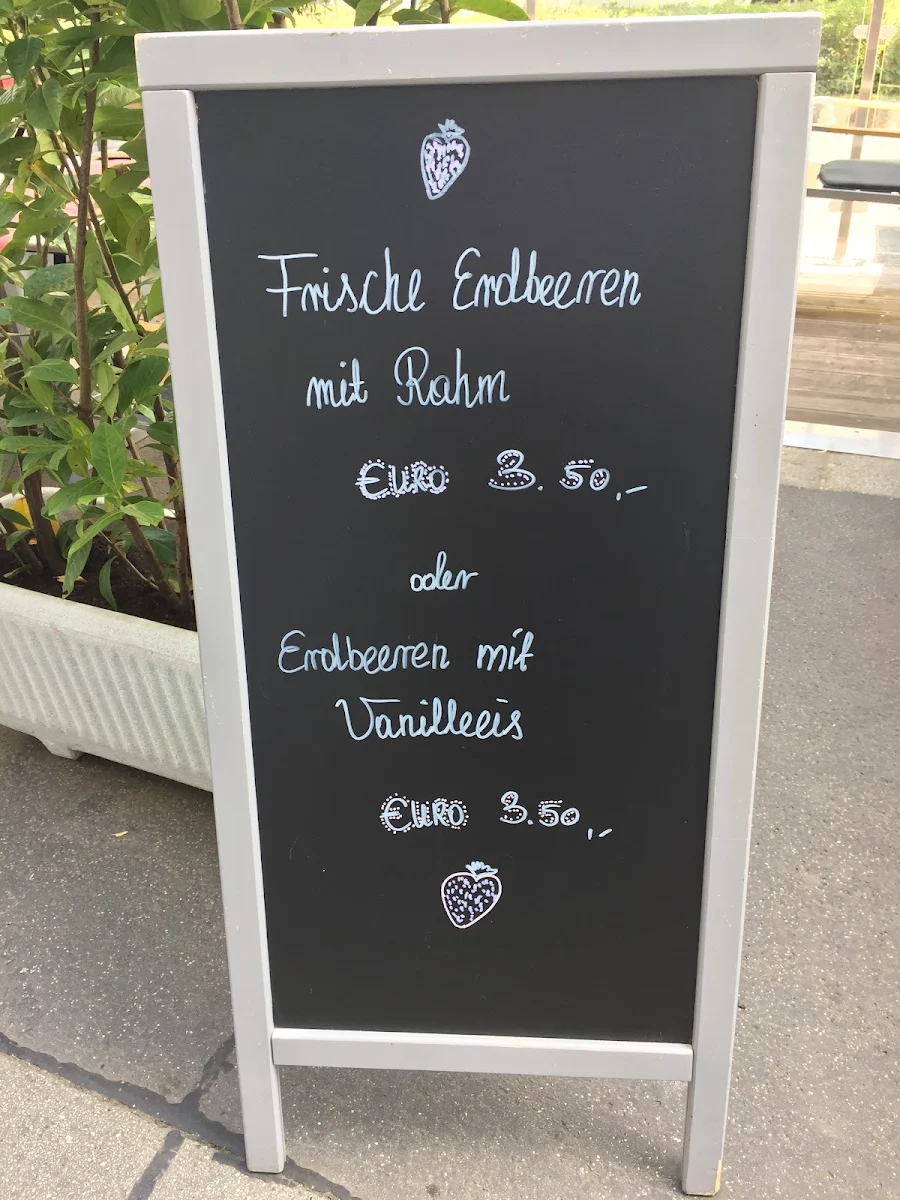 Frische Erdbeeren
mit Rahm
EURO 3.50,-
oder
Erdbeeren mit
Vanilleeis
EURO 3.50,-